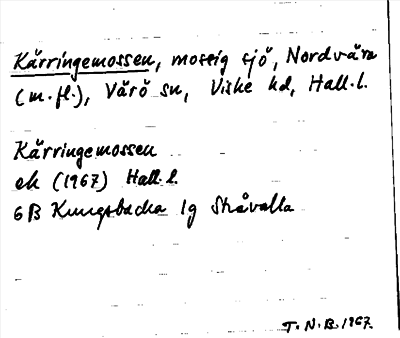 Kärringemossen, mossig sjö, Nordvära
(m.fl.), Värö sn, Viske hd, Hall.l.
Kärringemossen
ek (1967) Hall.l.
6B Kungsbacka 1g Stråvalla
T.N.B. 1967.